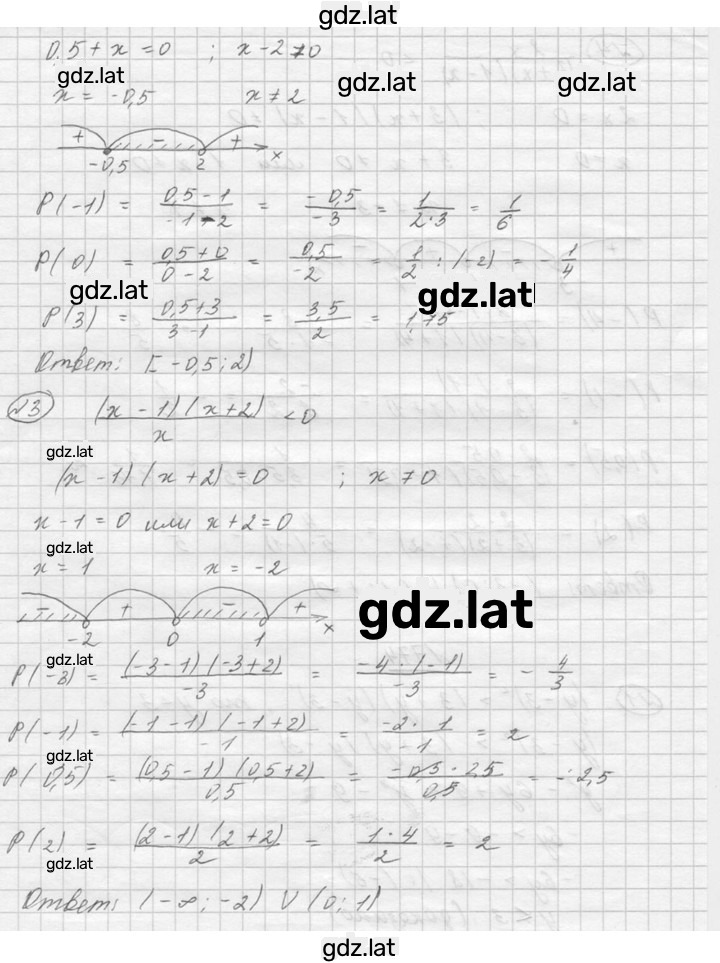 gdz.lat
0,5 + x = 0 ; x - 2 ≠ 0
gdz.lat gdz.lat gdz.lat
x = -0,5 x ≠ 2
+ - +
-0,5 2 x
P(-1) = (0,5 - 1)/(-1 - 2) = (-0,5)/(-3) = 1/(2·3) = 1/6
P(0) = (0,5 + 0)/(0 - 2) = 0,5/(-2) = 1/2 : (-2) = -1/4
gdz.lat gdz.lat
P(3) = (0,5+3)/(3-1) = 3,5/2 = 1,75
Ответ: [-0,5; 2)
№3 (x - 1)(x+2)/x < 0
gdz.lat
(x - 1)(x+2) = 0 ; x ≠ 0
x - 1 = 0 или x + 2 = 0
gdz.lat
x = 1 x = -2
- + - +
gdz.lat
-2 0 1 x
gdz.lat
P(-3) = (-3-1)(-3+2)/(-3) = (-4·(-1))/(-3) = -4/3
P(-1) = (-1-1)(-1+2)/(-1) = (-2·1)/(-1) = 2
gdz.lat
P(0,5) = (0,5-1)(0,5+2)/0,5 = (-0,5·2,5)/0,5 = -2,5
P(2) = (2-1)(2+2)/2 = (1·4)/2 = 2
gdz.lat
Ответ: (-∞; -2) ∪ (0; 1)
gdz.lat